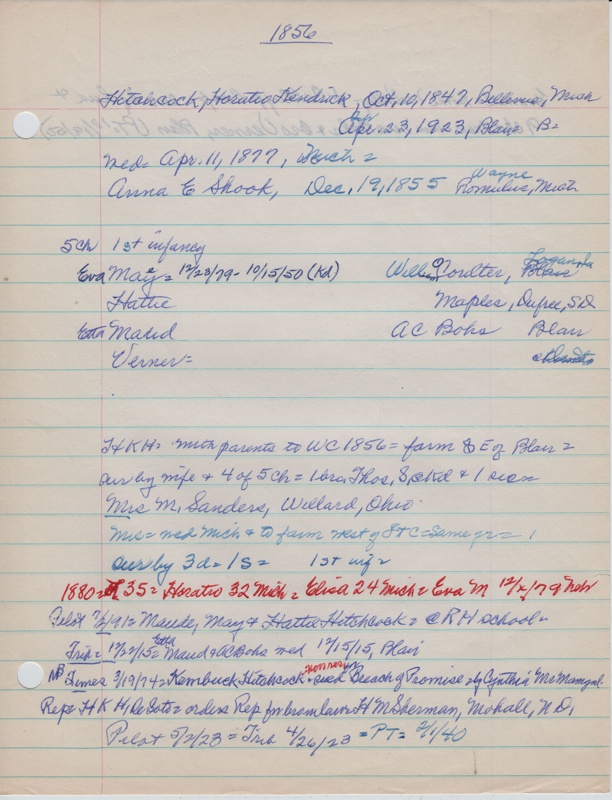 1856
Hitchcock, Horatio Kendrick, Oct, 10, 1847, Bellevue, Mich
Apr. 23, 1923, Blair = B=
wed= Apr. 11, 1877, Mich =
Wayne
Anna E Shook, Dec, 19, 1855 Romulus, Mich
5 ch 1st infancy
Logan, Ia
Eva May = 12/23/79 - 10/15/50 (Kd) William Coulter, Blair
Hattie Maples, Dupree, SD
Etta Maud A C Bohs Blair
Verner =
H K H = with parents to WC 1856 = farm 8 E of Blair =
sur by wife & 4 of 5 ch = 1 bro. Thos, & 1 sis =
Mrs M. Sanders, Willard, Ohio.
Mic = wed Mich & to farm west of = Same yr =
sur by 3d = 1S = 1st inf =
1880 = 35 = Horatio 32 Mich = Eliza 24 Mich = Eva M 12/x/79 Nebr
Pilot 7/2/91 = Maude, May & Hattie Hitchcock = C R H school =
Etta
Trib = 12/22/15 = Maud & AC Bohs wed 12/15/15, Blair
NB Times 3/19/74 = Kembuck Hitchcock = sued Breach of Promise = by Cynthia
Rep = H K H, De Soto = orders Rep for bro in law = H M Sherman, Mohall, N.D,
Pilot 5/2/23 = Trib 4/26/23 = PT = 2/1/40